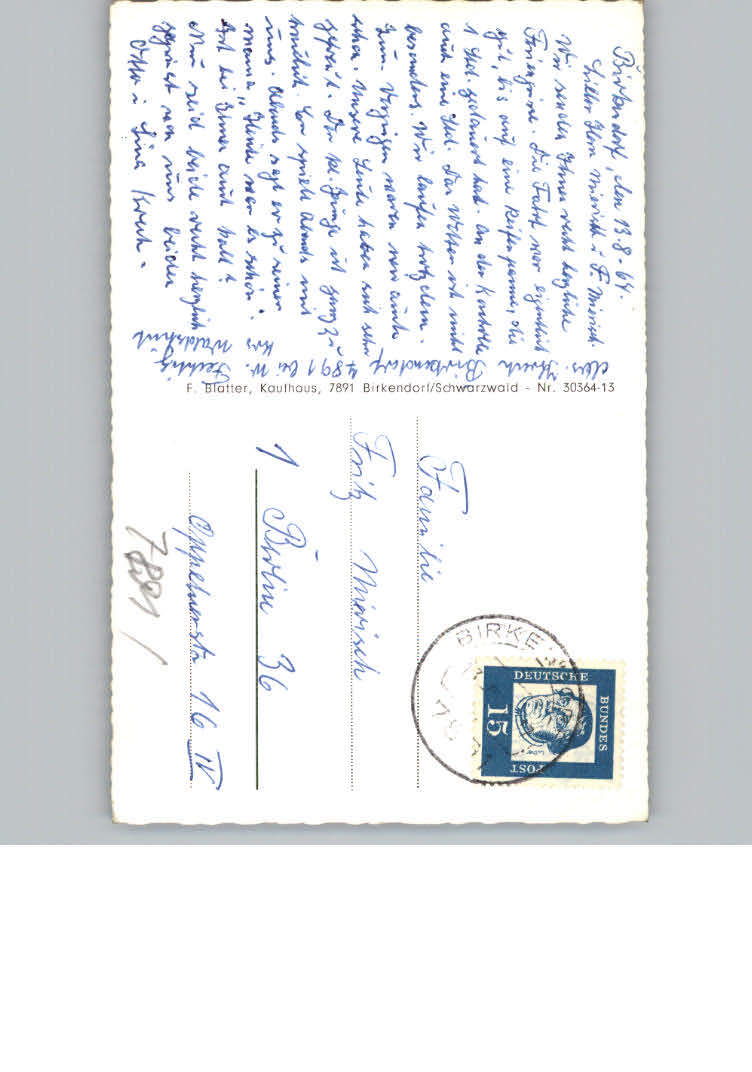 Birkendorf, den 13.8.64.
Lieber Herr Mierisch u. F. Mierisch.
Wir senden Ihnen recht herzliche
Feriengrüsse. Die Fahrt war eigentlich
gut, bis auf eine Reifenpanne, die
1 Std. gedauert hat. An der Kontrolle
auch eine Std. Das Wetter ist nicht
besonders. Wir laufen trotzdem.
Zum Vergnügen waren wir auch
schon. Unsere Leute haben sich sehr
gefreut. Der kl. Junge ist ganz zu
traulich. Er spielt Abends mit
uns. Abends sagt er zu seiner
Mama, Heute war es schön.
Ist bei Ihnen auch kalt?
Nun seid beide recht herzlich
gegrüsst von uns beiden
Otto u. Lina Kreh.
Abs. Kreh Birkendorf 7891 bei W.
Krs Waldshut
F. Blatter, Kaufhaus, 7891 Birkendorf/Schwarzwald - Nr. 30364-13
Familie
Fritz Mierisch
1 Berlin 36
Oppelnerstr 16 IV
7891
BIRKE
DEUTSCHE
BUNDES
POST
15